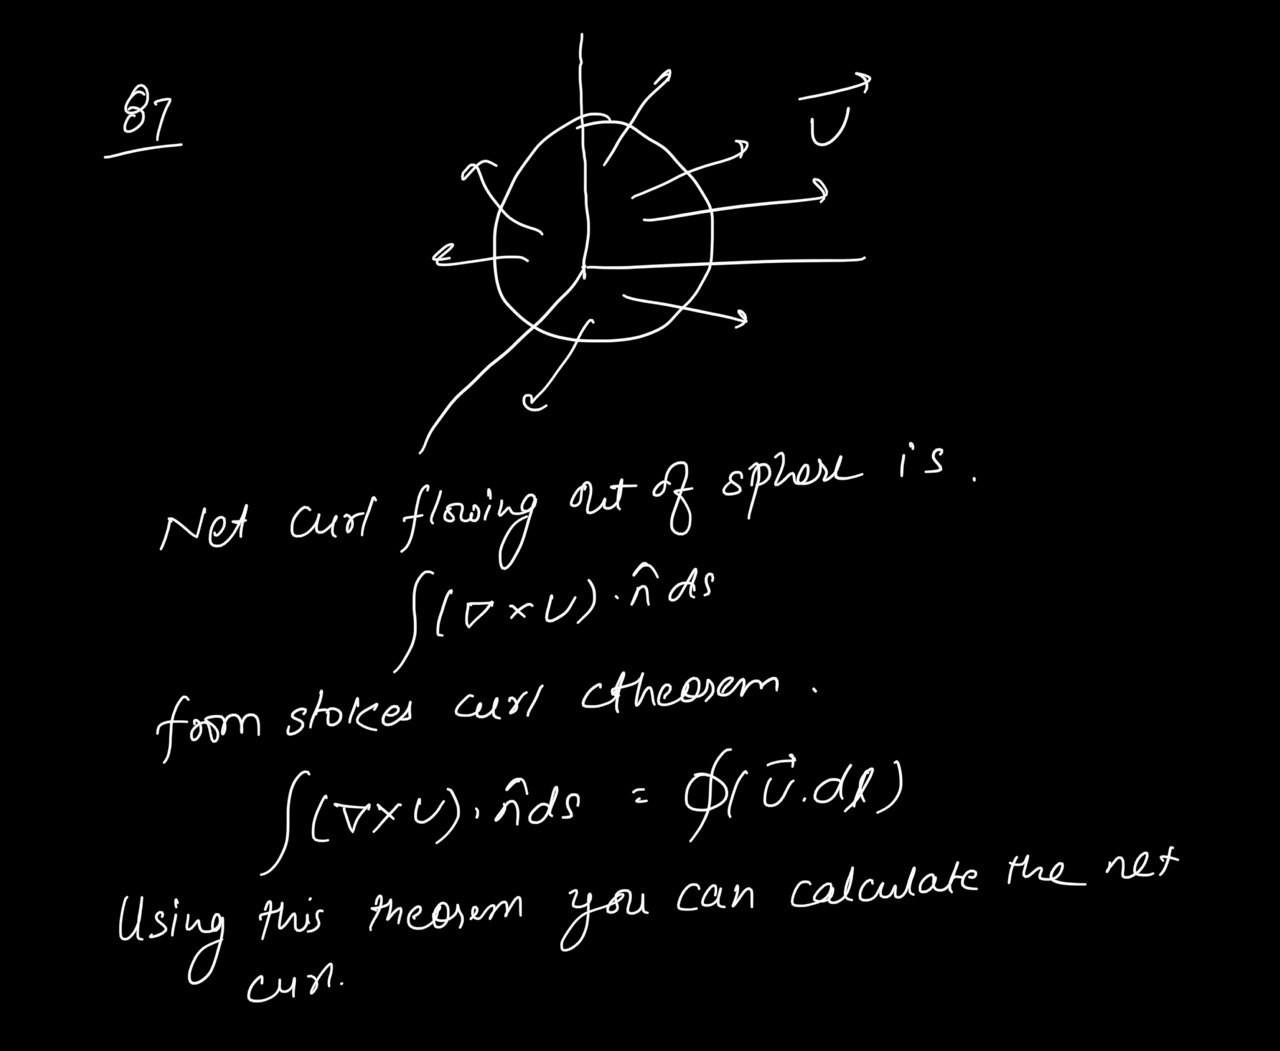 87
U⃗
Net curl flowing out of sphere is.
∫(∇×U).n̂ ds
from stokes curl ctheorem.
∫(∇×U).n̂ds = ∮(U⃗.dl)
Using this theorem you can calculate the net
curl.